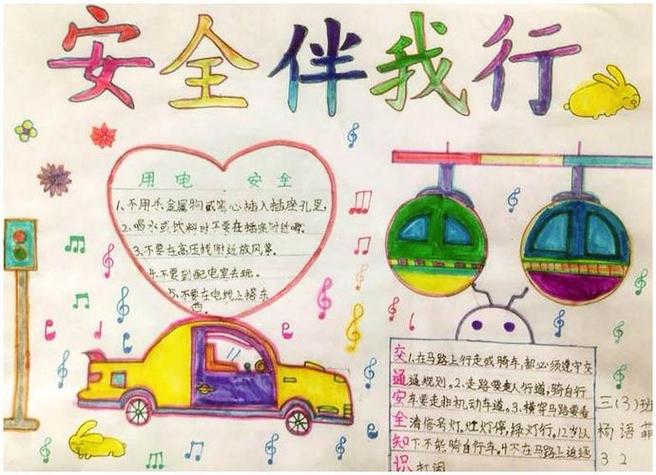 安全伴我行
用电 安全
1、不用金属物或笔心插入插座孔里,
2、喝水或饮料时不要在插座附近喝。
3、不要在高压线附近放风筝.
4.不要到配电室去玩.
5、不要在电线上搭东
西.
交通安全知识
1、在马路上行走或骑车,都必须遵守交
通规则。2、走路要走人行道,骑自行
车要走非机动车道。3、横穿马路要看
清信号灯,红灯停,绿灯行。12岁以
下不能骑自行车。4不在马路上追逐
打闹
三(3)班
杨语菲
32